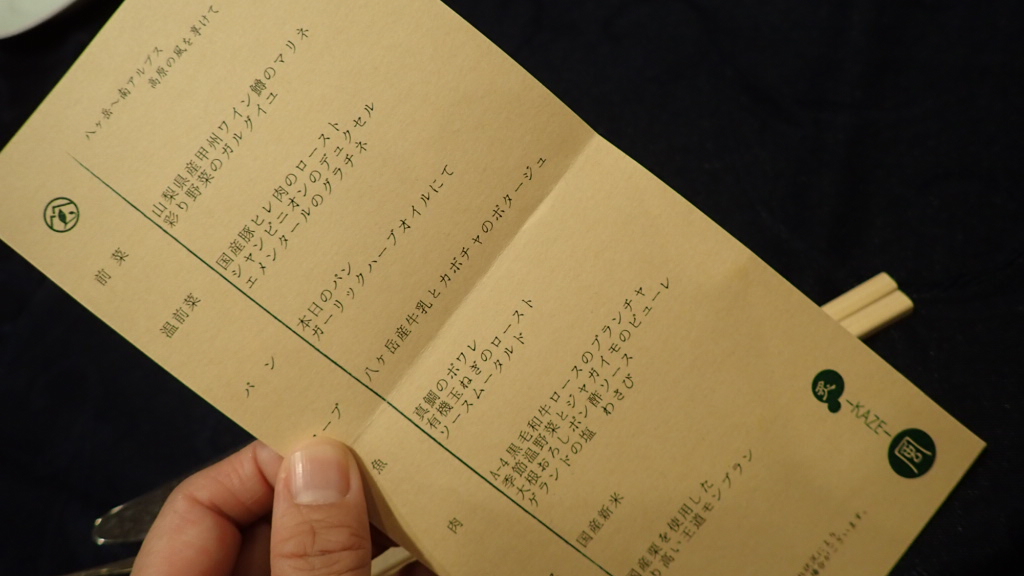 八ヶ岳～南アルプス
高原の風を導けて
前菜
山梨県産甲州ワイン鱒のマリネ
彩り野菜のガルグイユ
温前菜
国産豚ヒレ肉のロースト
シャンピニオンのデュクセル
エメンタールのグラチネ
パン
本日のパン
ガーリックハーブオイルにて
ープ
八ヶ岳産牛乳とカボチャのポタージュ
魚
真鯛のポワレ
有機玉ねぎのロースト
ソースムータルド
肉
A-4黒毛和牛ロースのプランチャ
季節温野菜とジャガイモのピューレ
大根おろしポン酢ソース
ゲランドの塩　わさび
国産新米
国産栗を使用した
り高い王道モンブラン
炙
-KAZE-
風